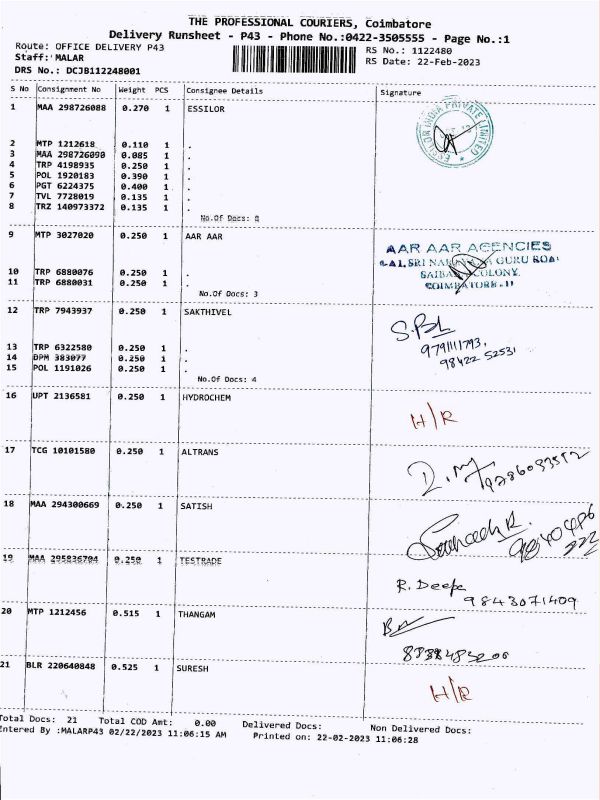 THE PROFESSIONAL COURIERS, Coimbatore
Delivery Runsheet - P43 - Phone No.:0422-3505555 - Page No.:1
Route: OFFICE DELIVERY P43 RS No.: 1122480
Staff: MALAR RS Date: 22-Feb-2023
DRS No.: DCJB112248001
S No Consignment No Weight PCS Consignee Details Signature
1 MAA 298726088 0.270 1 ESSILOR
ESSILOR INDIA PRIVATE LIMITED
2 MTP 1212618 0.110 1 .
3 MAA 298726090 0.085 1 .
4 TRP 4198935 0.250 1 .
5 POL 1920183 0.390 1 .
6 PGT 6224375 0.400 1 .
7 TVL 7728019 0.135 1 .
8 TRZ 140973372 0.135 1 .
No.Of Docs: 8
9 MTP 3027020 0.250 1 AAR AAR
AAR AAR AGENCIES
GURU ROAD
SAIBABA COLONY.
COIMBATORE-11
10 TRP 6880076 0.250 1 .
11 TRP 6880031 0.250 1 .
No.Of Docs: 3
12 TRP 7943937 0.250 1 SAKTHIVEL
98422 52531
13 TRP 6322580 0.250 1 .
14 DPM 383077 0.250 1 .
15 POL 1191026 0.250 1 .
No.Of Docs: 4
16 UPT 2136581 0.250 1 HYDROCHEM
H/R
17 TCG 10101580 0.250 1 ALTRANS
18 MAA 294300669 0.250 1 SATISH
19 MAA 295836704 0.250 1 TESTRADE
R. Deepa
9843071409
20 MTP 1212456 0.515 1 THANGAM
21 BLR 220640848 0.525 1 SURESH
H/R
Total Docs: 21 Total COD Amt: 0.00 Delivered Docs: Non Delivered Docs:
Entered By :MALARP43 02/22/2023 11:06:15 AM Printed on: 22-02-2023 11:06:28